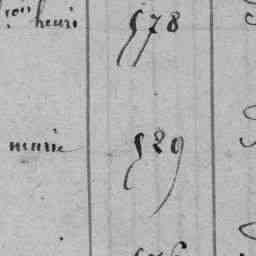 henri 578
marie 529